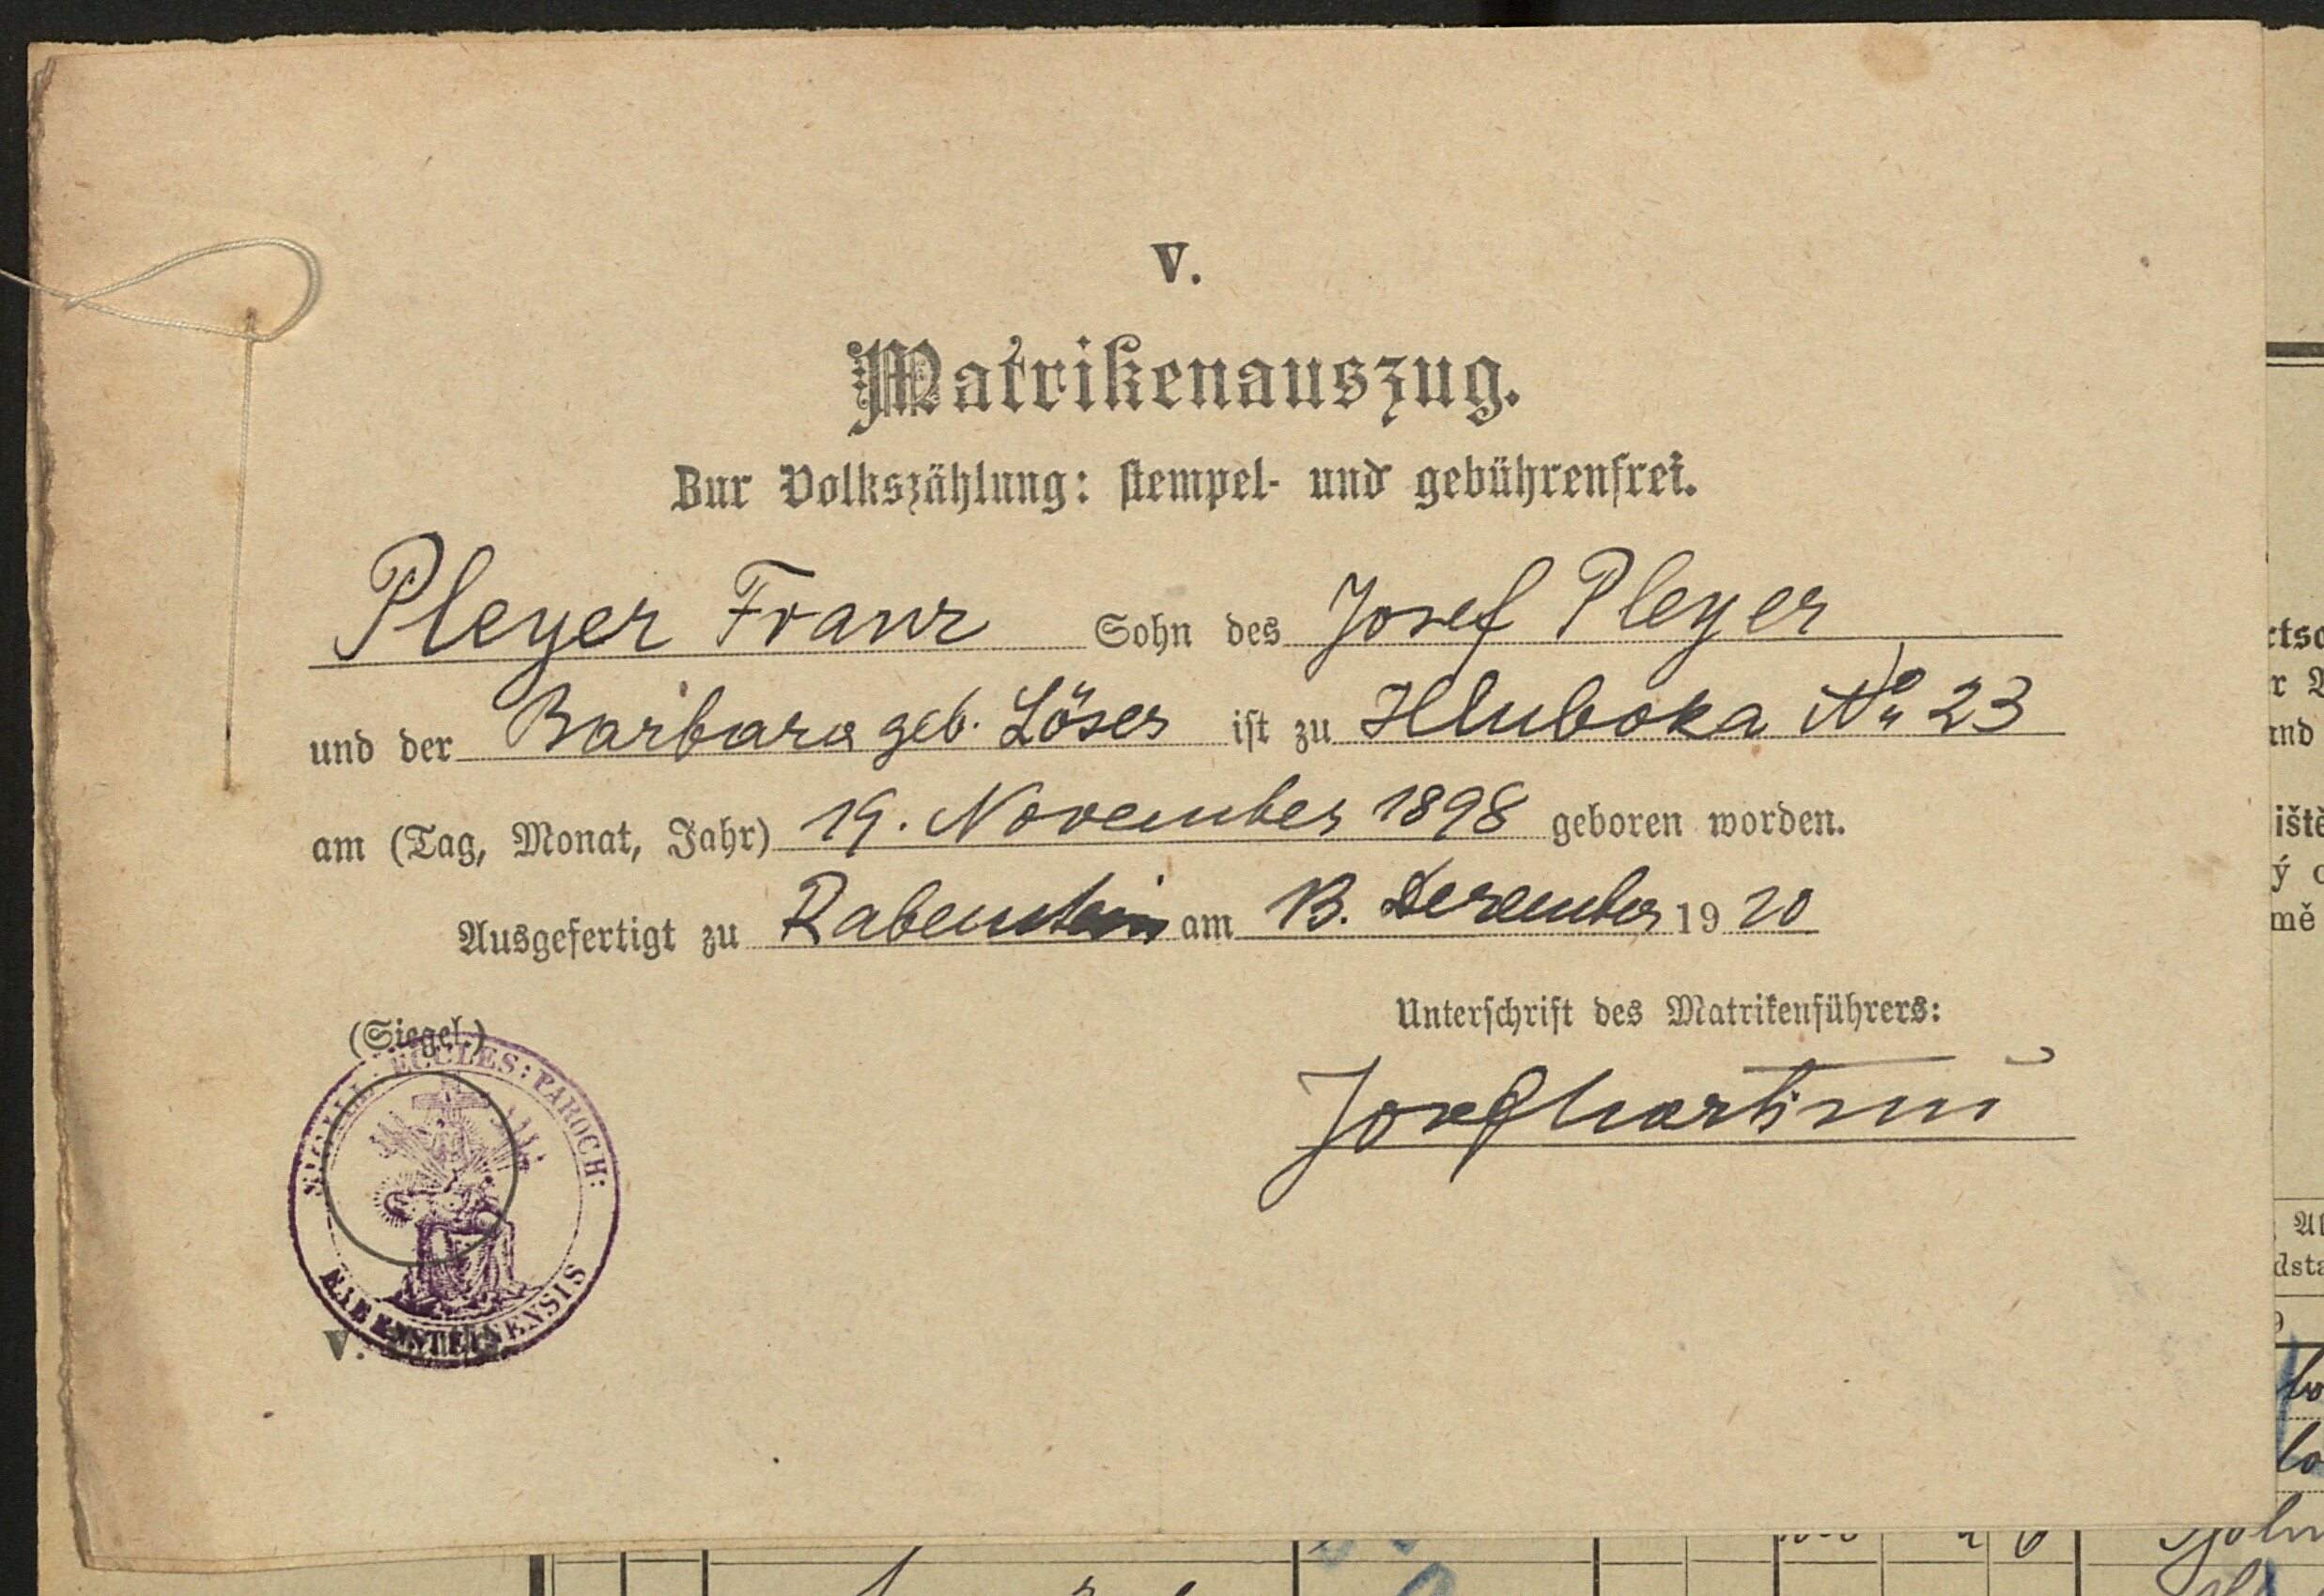 V.
Matrikenauszug.
Zur Volkszählung: stempel- und gebührenfrei.
Pleyer Franz Sohn des Josef Pleyer
und der Barbara geb. Löser ist zu Hluboka No 23
am (Tag, Monat, Jahr) 19. November 1898 geboren worden.
Ausgefertigt zu Rabenstein am 13. Dezember 1920
Unterschrift des Matrikenführers:
(Siegel.)
Josef Martinü
SIGILL: ECCLES: PAROCH:
RABENSTEINENSIS
V.